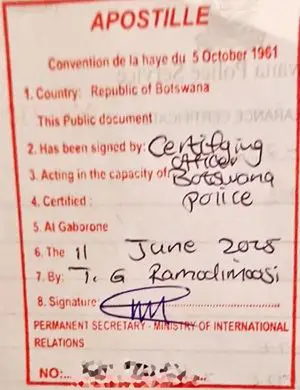 APOSTILLE
Convention de la haye du 5 October 1961
1. Country: Republic of Botswana
This Public document
2. Has been signed by: Certifying Officer
3. Acting in the capacity of Botswana Police
4. Certified :
5. At Gaborone
6. The 11 June 2025
7. By: T. G Ramodimoosi
8. Signature:
PERMANENT SECRETARY - MINISTRY OF INTERNATIONAL
RELATIONS
NO: